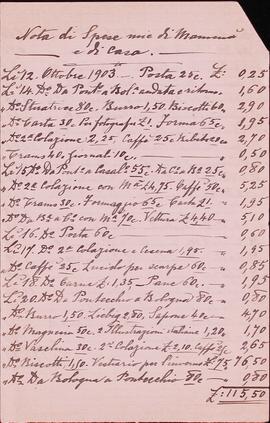 Nota di Spese mie di Mammà
e di Casa.
Li 12. Ottobre 1903. Posta 25c. £: 0,25
Li 14. Do. Da Pont. a Bol. andata e ritorno 1,60
" Do. 80c. Burro 1,50. Biscotti 60c. 2,90
" Do. Carta 30c. Fotografu 21. Forma 65c. 8,95
" Do. 2a. Colazione 2,25. Caffè 25c. 20c. 2,70
" Trams 40. Giornal 10c. 0,50
Li 15. Do. Da Pont. a Casal. 55c. Da Ca. a Ba. 25c. 0,80
" Do. 2a. Colazione con Ma. £4,75. Caffè 50c. 5,25
" Do. Trams 30c. Formaggio 65c. Carta 21. 1,95
" Do. Da Ba. a Ca. con Ma. 70c. Vettura £4,40 5,10
Li 16. Do. Posta 60c. 0,60
Li 17. Do. 2a. Colazione a Cesena 1,95. 1,95
" Do. Caffè 25c. Lucido per scarpe 60c. 0,85
Li 18. Do. Carne £.1,35. Pane 60c. 1,95
Li 20. Do. Da Pontecchio a Bologna 80c. 0,80
" Do. Burro 1,50. Liebig 2,80. Sapone 40c. 4,70
" Do. Magnesia 50c. 2 Illustrazioni italiane 1,20c. 1,70
" Do. Vaselina 30c. 2a. Colazione £2,10. Caffè 25c. 2,65
" Do. Biscotti, 1,50. Vestiario per l'inverno £75 76,50
" Do. Da Bologna a Pontecchio 80c. 0,80
£: 115,50